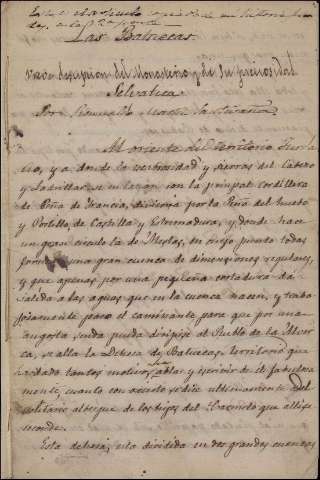 Las Batuecas
Breve descripcion del Monasterio y de su fragosidad
Selvatica
Por Romualdo Martin
Al oriente del territorio Jurda
no, y a donde la escabrosidad y sierras del Cabezo
y Ladrillar se enlazan con la principal cordillera
de Peña de Francia, divisoria por la Peña del huebo
y Portillo, de Castilla y Estremadura, y donde hace
un gran circulo la de Mestas, en cuyo punto todas
forman una gran cuenca de dimensiones regulares,
y que apenas por una pequeña cortadura da
salida a las aguas que en la cuenca nacen, y traba
josamente paso al caminante para que por una
angosta senda pueda dirijirse al Pueblo de la Alver
ca, se alla la Dehesa de Batuecas, territorio que
ha dado tantos motivos, ablar y escribir de el fabulosa
mente, cuanto con acierto se dice ultimamente del
solitario albergue de los hijos del Carmelo que alli se
esconde.
Esta dehesa, esta dividida en dos grandes cuencas